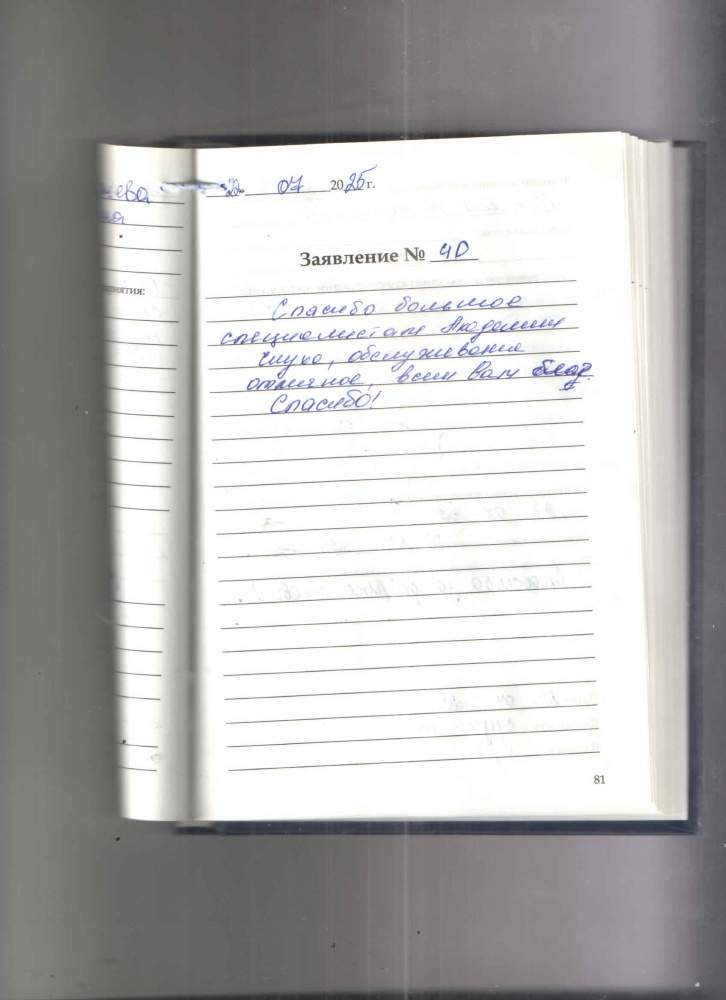 ева
на
риятия:
22 07 2025 г.
Заявление № 40
Спасибо большое
специалистам Академии
слуха, обслуживание
отличное, всем Вам благ.
Спасибо!
81